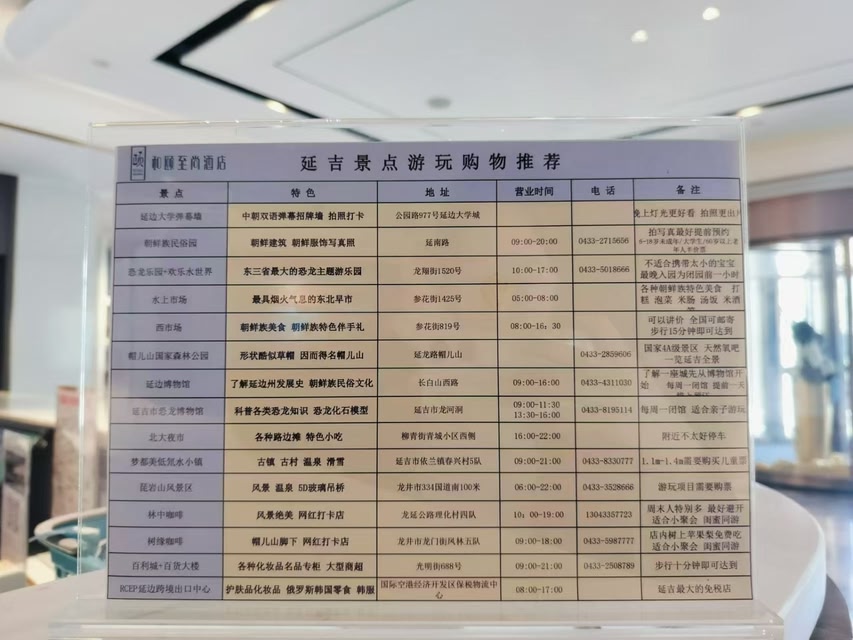 和颐至尚酒店 延吉景点游玩购物推荐
景点 特色 地址 营业时间 电话 备注
延边大学弹幕墙 中朝双语弹幕招牌墙 拍照打卡 公园路977号延边大学城 晚上灯光更好看 拍照更出片
朝鲜族民俗园 朝鲜建筑 朝鲜服饰写真照 延南路 09:00-20:00 0433-2715656 拍写真最好提前预约
6-18岁未成年/大学生/60岁以上老
年人半价票
恐龙乐园+欢乐水世界 东三省最大的恐龙主题游乐园 龙翔街1520号 10:00-17:00 0433-5018666 不适合携带太小的宝宝
最晚入园为闭园前一小时
水上市场 最具烟火气息的东北早市 参花街1425号 05:00-08:00 各种朝鲜族特色美食 打
糕 泡菜 米肠 汤饭 米酒
西市场 朝鲜族美食 朝鲜族特色伴手礼 参花街819号 08:00-16：30 可以讲价 全国可邮寄
步行15分钟即可达到
帽儿山国家森林公园 形状酷似草帽 因而得名帽儿山 延龙路帽儿山 0433-2859606 国家4A级景区 天然氧吧
一览延吉全景
延边博物馆 了解延边州发展史 朝鲜族民俗文化 长白山西路 09:00-16:00 0433-4311030 了解一座城先从博物馆开
始 每周一闭馆 提前一天
延吉市恐龙博物馆 科普各类恐龙知识 恐龙化石模型 延吉市龙河洞 09:00-11:30
13:30-16:00 0433-8195114 每周一闭馆 适合亲子游玩
北大夜市 各种路边摊 特色小吃 柳青街青城小区西侧 16:00-22:00 附近不太好停车
梦都美低氘水小镇 古镇 古村 温泉 滑雪 延吉市依兰镇春兴村5队 09:00-21:00 0433-8330777 1.1m-1.4m需要购买儿童票
琵岩山风景区 风景 温泉 5D玻璃吊桥 龙井市334国道南100米 06:00-22:00 0433-3528666 游玩项目需要购票
林中咖啡 风景绝美 网红打卡店 龙延公路理化村四队 10：00-19:00 13043357723 周末人特别多 最好避开
适合小聚会 闺蜜同游
树缘咖啡 帽儿山脚下 网红打卡店 龙井市龙门街风林五队 09:00-18:00 0433-5987777 店内树上苹果梨免费吃
适合小聚会 闺蜜同游
百利城+百货大楼 各种化妆品名品专柜 大型商超 光明街688号 09:00-21:00 0433-2508789 步行十分钟即可达到
RCEP延边跨境出口中心 护肤品化妆品 俄罗斯韩国零食 韩服 国际空港经济开发区保税物流中
心 08:00-17:00 延吉最大的免税店